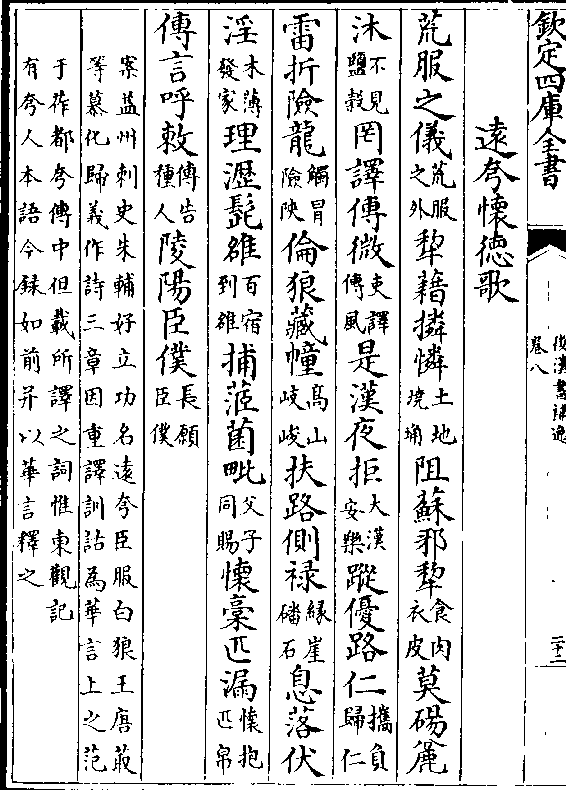 欽定四庫全書
後漢書補逸
卷八
二十二
遠夸懷德歌
荒服之儀荒服之外犂藉憐憐土地墝埆阻蘇邪犂食肉衣皮莫碭麄
沐不見鹽穀罔譯傳微吏譯傳風是漢夜拒大漢安樂蹤優路仁攜負歸仁
雷折險龍觸冒險陜倫狼藏幢高山岐峻扶路側祿緣崖磻石息落伏
淫木薄發家理瀝髭雒百宿到雒捕茝菌毗父子同賜懷稾匹漏懷抱匹帛
傳言呼敕傳告種人陵陽臣僕長願臣僕
案益州刺史朱輔好立功名遠夸臣服白狼王唐菆
等慕化歸義作詩三章因重譯訓詁為華言上之范
于莋都夸傳中但載所譯之詞惟東觀記
有夸人本語今録如前并以華言釋之